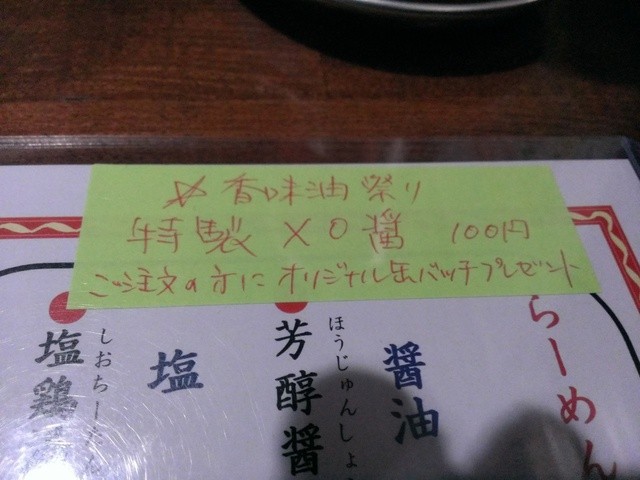 ☆香味油祭り
特製XO醤 100円
ご注文の方にオリジナル缶バッチプレゼント
らーめん
醤油
ほうじゅんしょ
芳醇醤
塩
しおちー
塩鶏